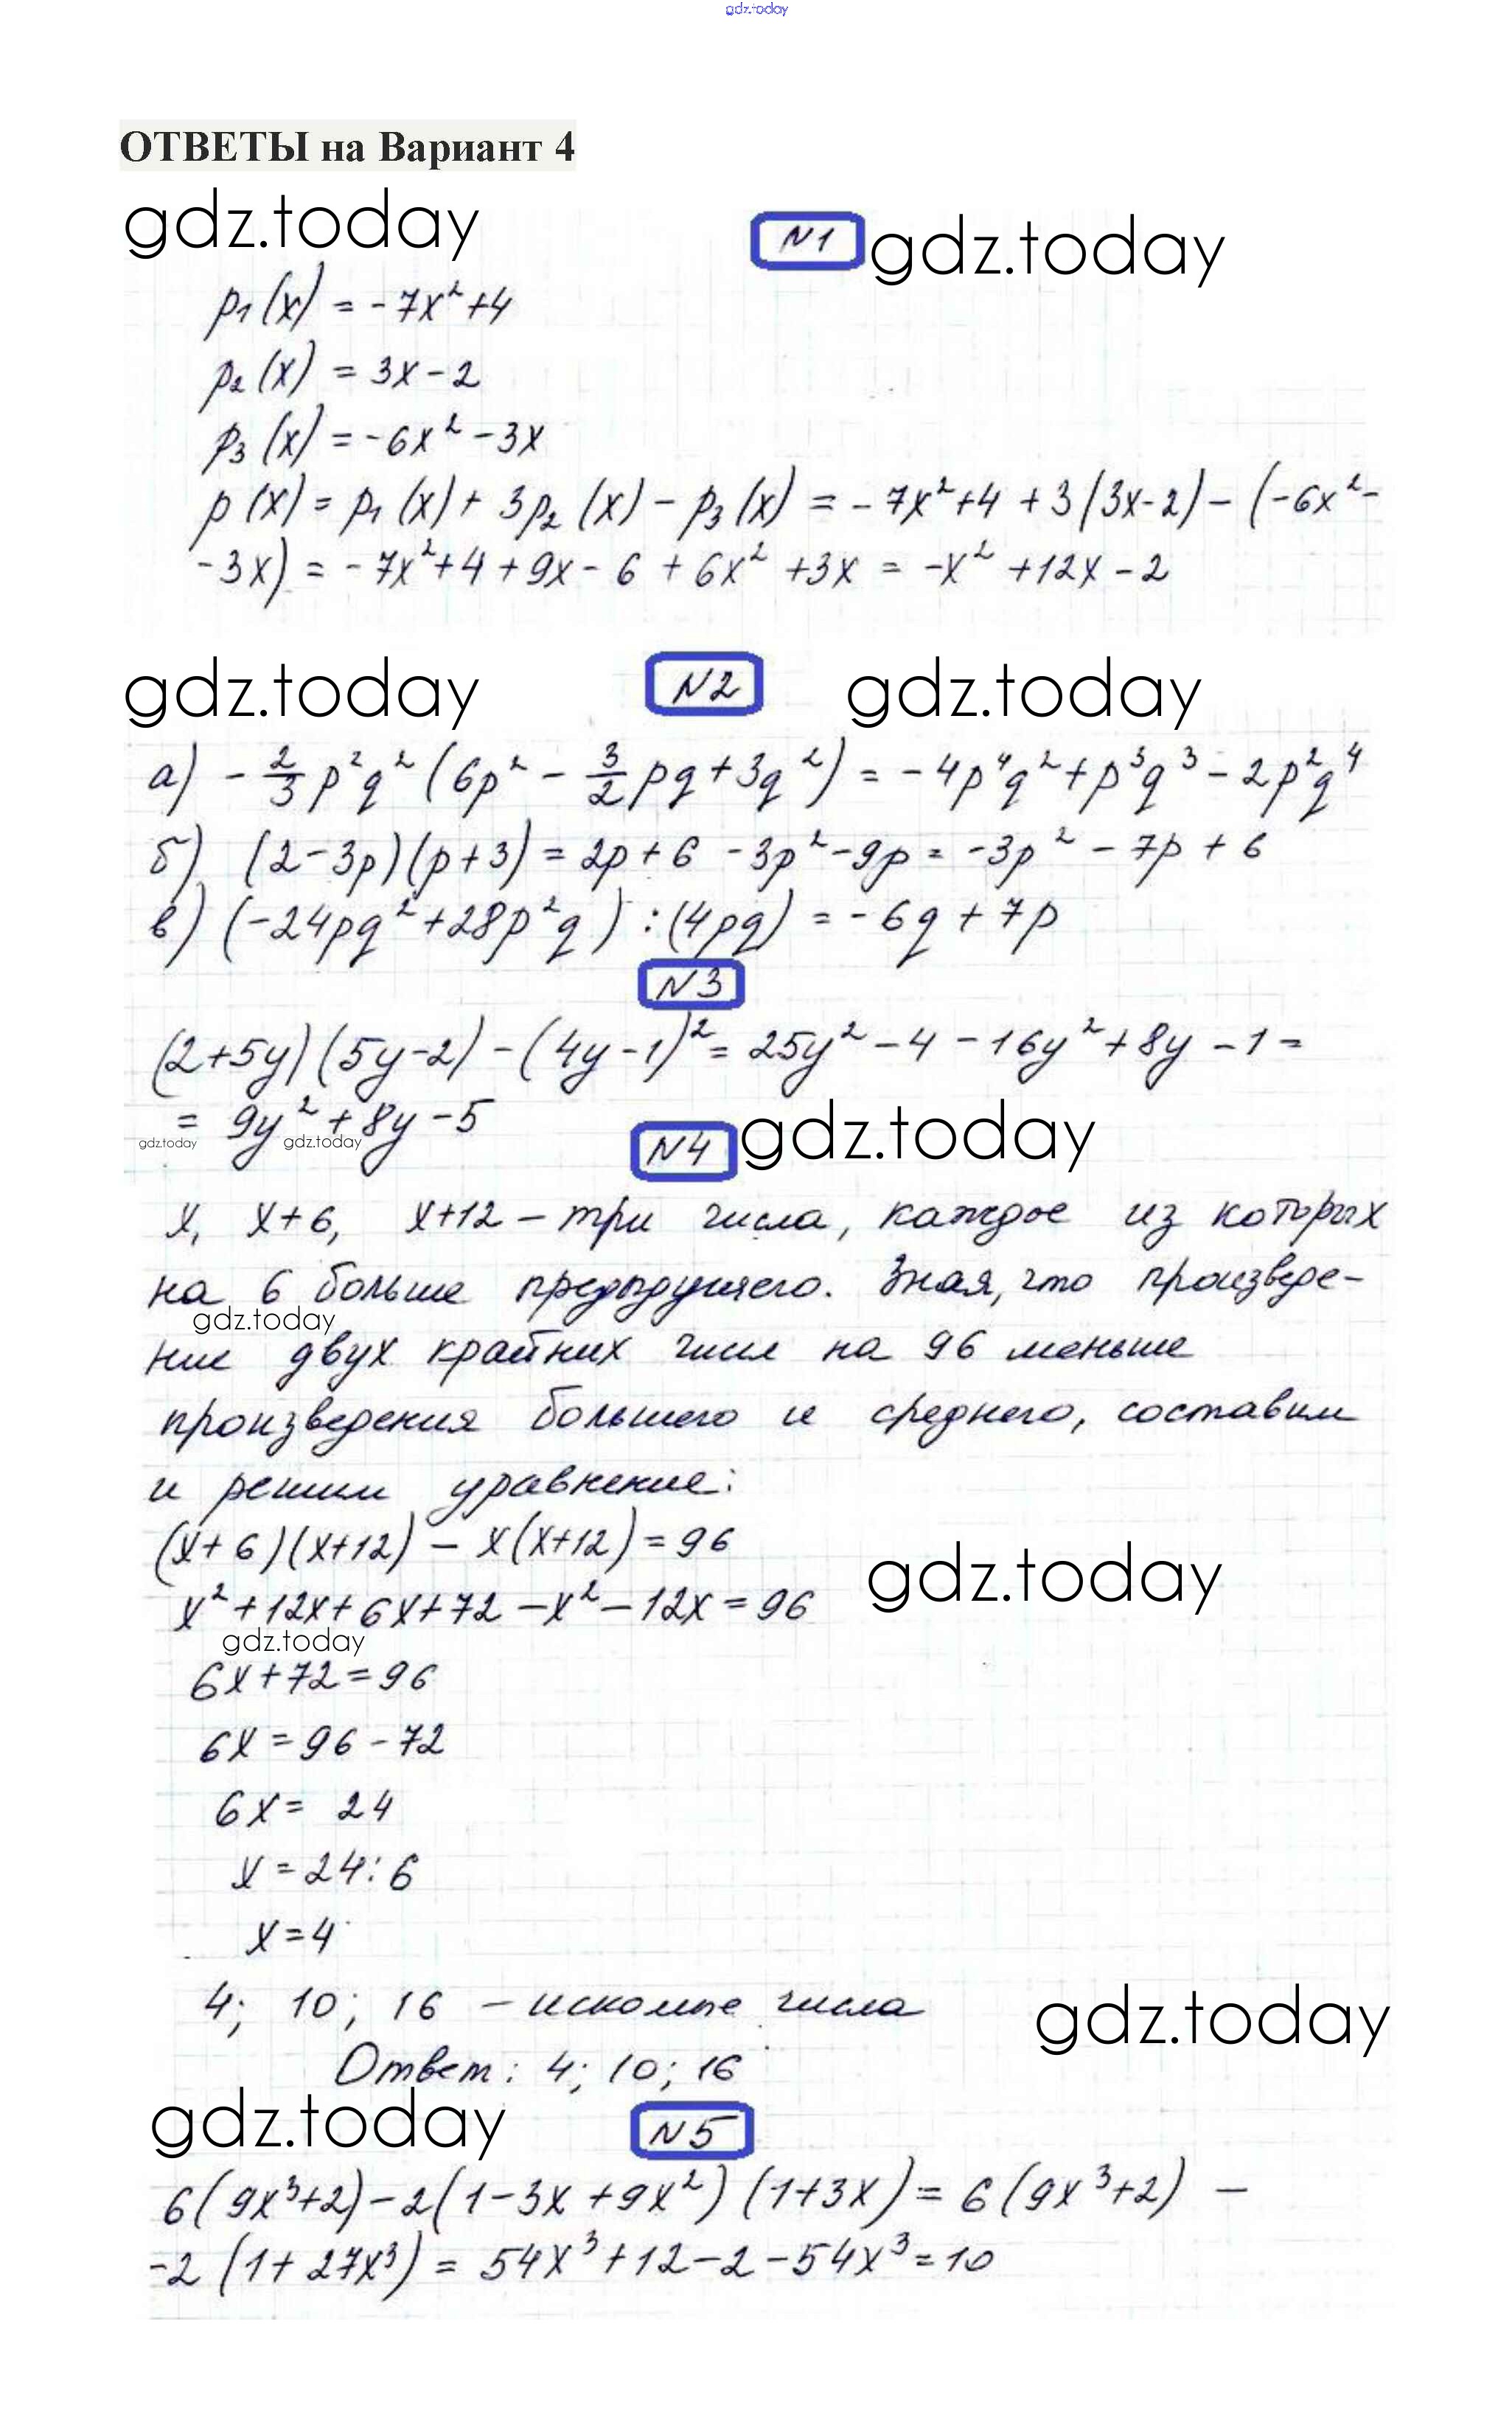 gdz.today
ОТВЕТЫ на Вариант 4
gdz.today
N1 gdz.today
p₁(x) = -7x²+4
p₂(x) = 3x-2
p₃(x) = -6x²-3x
p(x) = p₁(x)+ 3p₂(x) - p₃(x) = -7x²+4 + 3(3x-2) - (-6x²-
-3x) = -7x²+4+9x-6 + 6x² +3x = -x² +12x-2
gdz.today N2 gdz.today
а) -2/3 p²q² (6p² - 3/2 pq + 3q²) = -4p⁴q² + p³q³ - 2p²q⁴
б) (2-3p)(p+3) = 2p+6 -3p²-9p = -3p² - 7p + 6
в) (-24pq²+28p²q) : (4pq) = -6q + 7p
N3
(2+5y)(5y-2) - (4y-1)² = 25y² - 4 - 16y² + 8y - 1 =
= 9y² + 8y - 5
gdz.today gdz.today
N4 gdz.today
x, x+6, x+12 - три числа, каждое из которых
на 6 больше предыдущего. Зная, что произведе-
gdz.today
ние двух крайних чисел на 96 меньше
произведения большего и среднего, составим
и решим уравнение:
(x+6)(x+12) - x(x+12) = 96
gdz.today
x²+12x+6x+72-x²-12x = 96
gdz.today
6x+72=96
6x=96-72
6x= 24
x=24:6
x=4
4; 10; 16 - искомые числа
gdz.today
Ответ: 4; 10; 16
gdz.today N5
6(9x³+2)-2(1-3x+9x²)(1+3x) = 6(9x³+2) -
-2(1+27x³) = 54x³+12-2-54x³=10